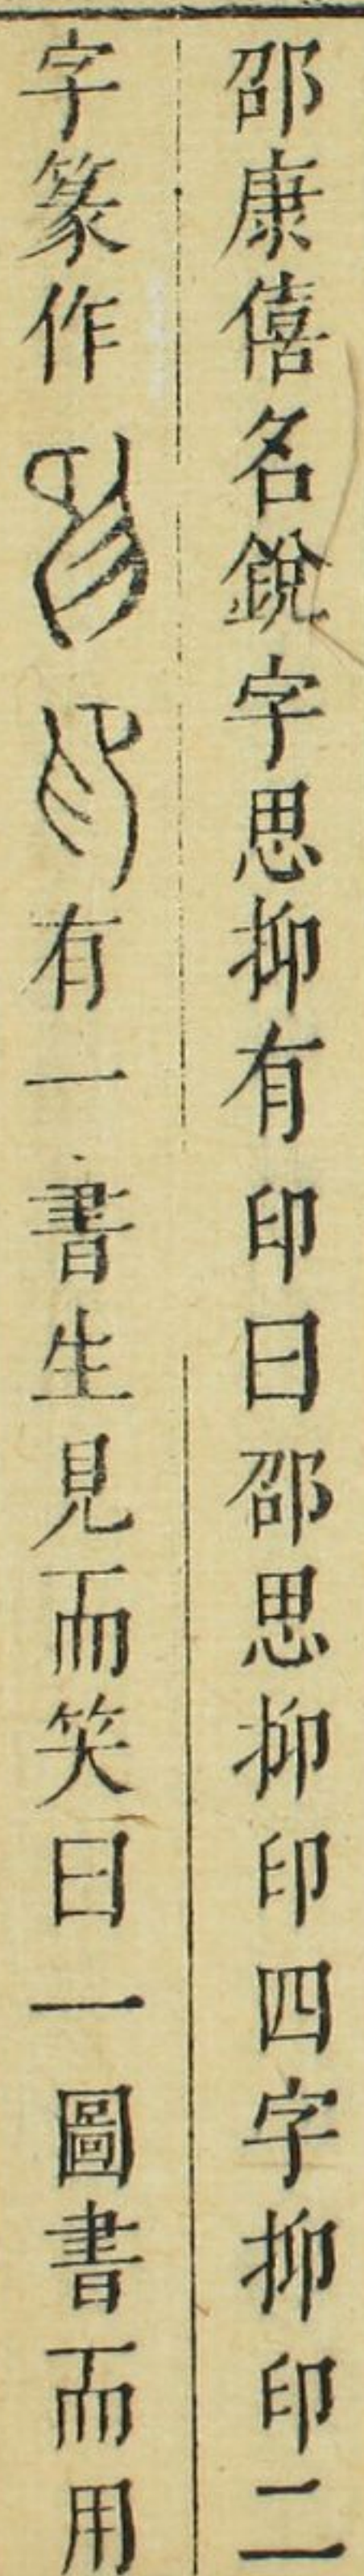 邵康僖名銳字思抑有印曰邵思抑印四字抑印二
字篆作有一書生見而笑曰一圖書而用